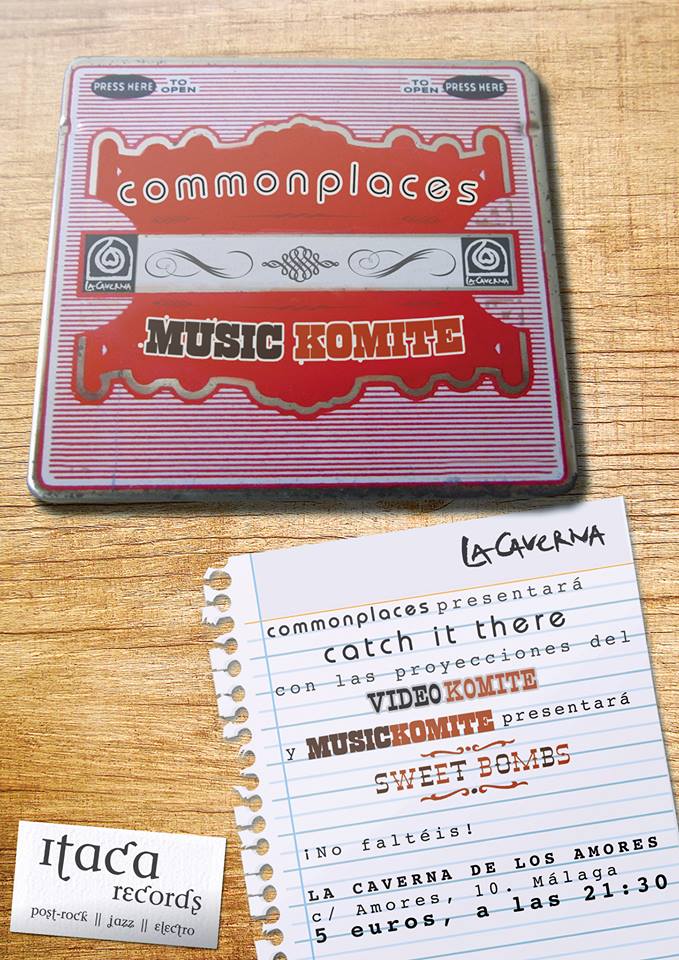 PRESS HERE TO OPEN
TO OPEN PRESS HERE
commonplaces
LA CAVERNA
LA CAVERNA
MUSIC KOMITE
LA CAVERNA
commonplaces presentará
catch it there
con las proyecciones del
VIDEOKOMITE
y MUSICKOMITE presentará
SWEET BOMBS
¡No faltéis!
LA CAVERNA DE LOS AMORES
c/ Amores, 10. Málaga
5 euros, a las 21:30
itaca
records
post-rock || jazz || electro